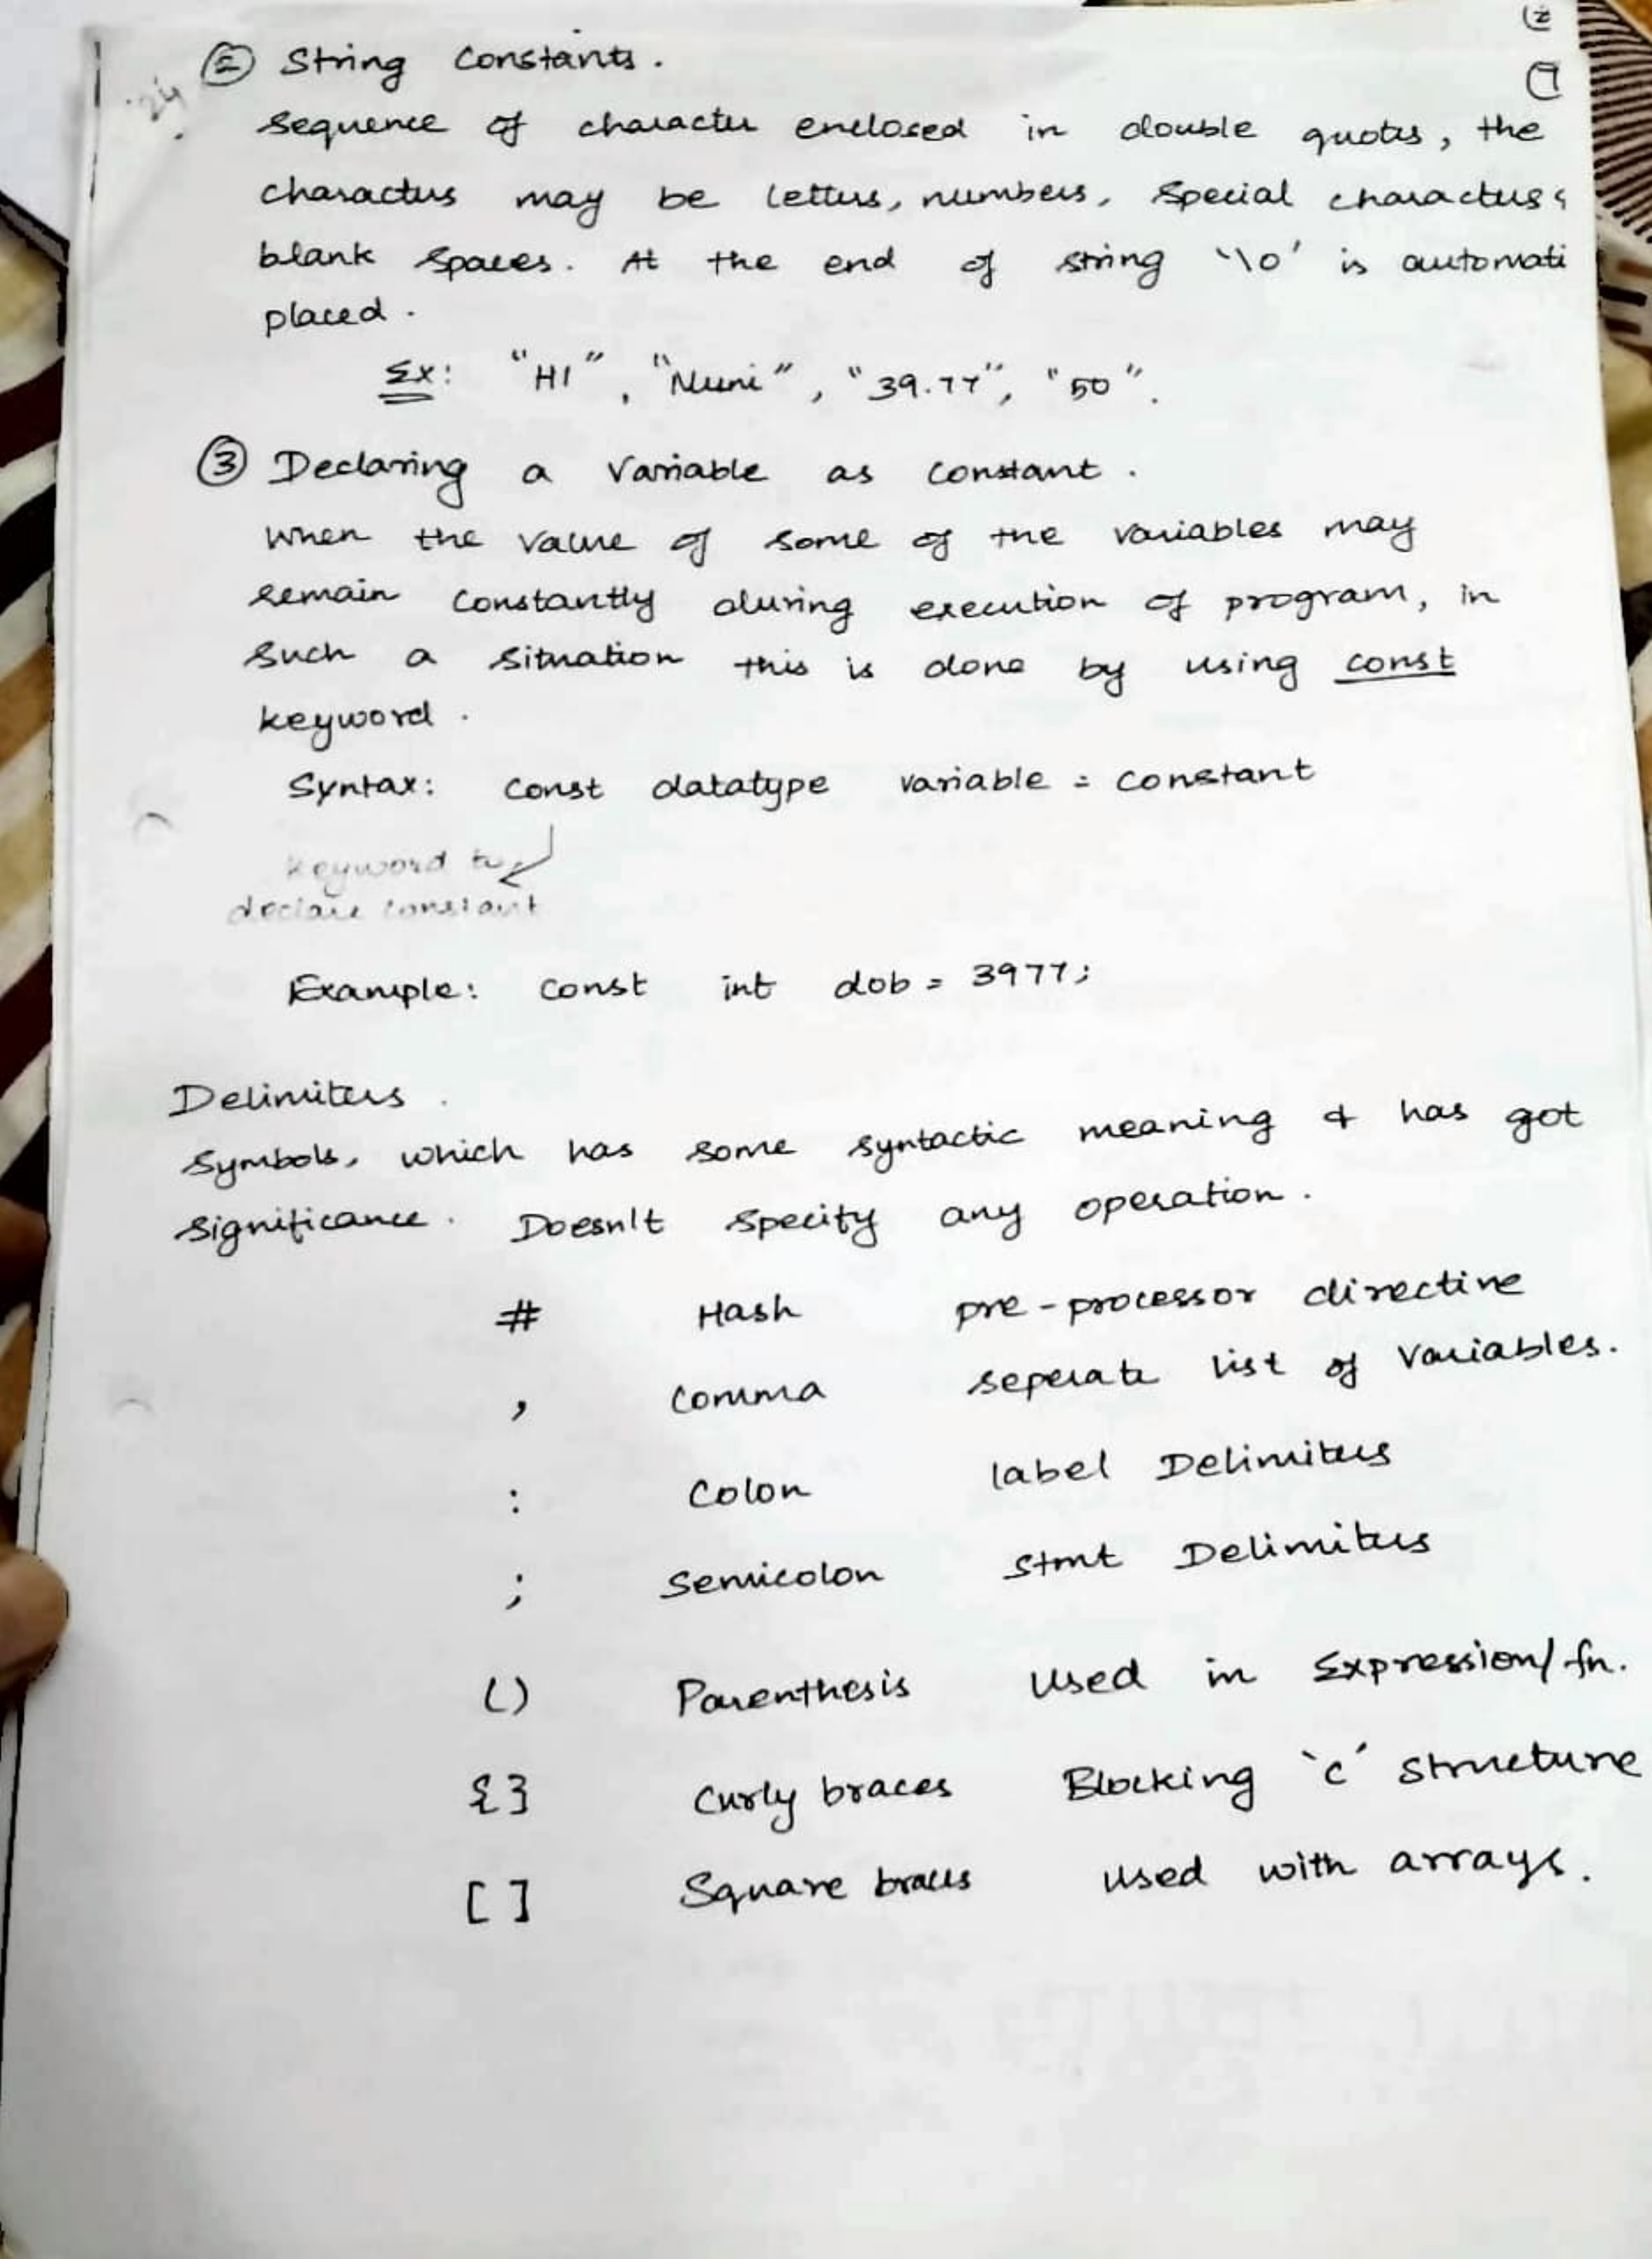 ② String Constants.
Sequence of character enclosed in double quotes, the
characters may be letters, numbers, special characters &
blank spaces. At the end of string '\0' is automati
placed.
Ex: "HI", "Nuni", "39.77", "50".
③ Declaring a Variable as constant.
When the value of some of the variables may
remain constantly during execution of program, in
such a situation this is done by using const
keyword.
Syntax: const datatype variable = constant
keyword to
declare constant
Example: const int dob = 3977;
Delimiters.
Symbols, which has some syntactic meaning & has got
significance. Doesn't specify any operation.
# Hash pre-processor directive
, Comma seperate list of variables.
: Colon label Delimiters
; Semicolon Stmt Delimiters
() Parenthesis Used in Expression/fn.
{} Curly braces Blocking 'C' structure
[ ] Square braces used with arrays.